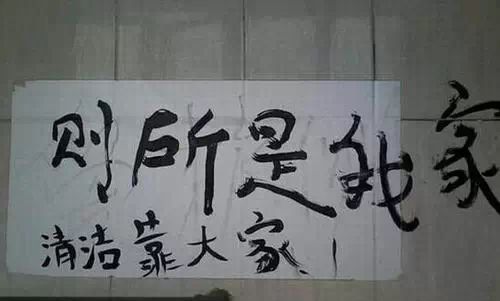 则所是我家
清洁靠大家！